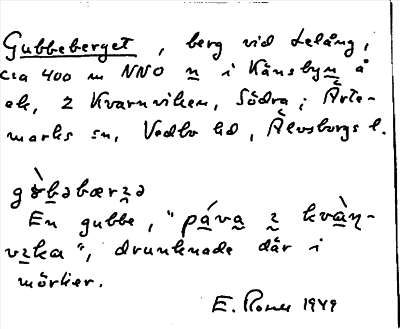 Gubbeberget, berg vid Lelång,
cia 400 m NNO n i Känsbyn å
ek, 2 Kvarnviken, Södra; Årte-
marks sn, Vedbo hd, Älvsborgs l.
En gubbe, "páva z kvàη-
vzka", drunknade där i
mörker.
E. 1949